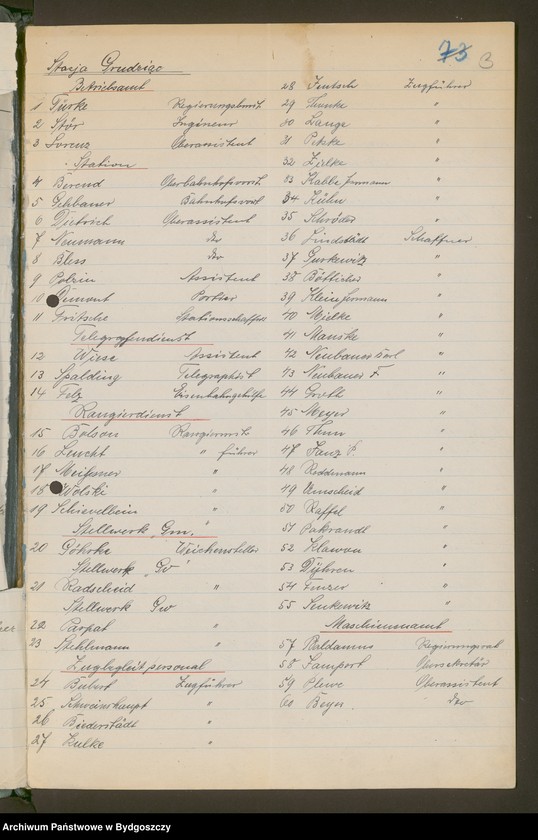 73 3
Stacja Grudziąc
Betriebsamt
1 Türke Regierungsbmst.
2 Stör Ingenieur
3 Lorenz Oberassistent
Station
4 Berend Oberbahnhofsvorst.
5 Gehbauer Bahnhofsvorst
6 Dietrich Oberassistent
7 Neumann dto
8 Bless dto
9 Polzin Assistent
10 Portier
11 Fritsche Stationsschaffner
Telegrafendienst
12 Wiese Assistent
13 Spalding Telegraphist
14 Felz Eisenbahngehilfe
Rangierdienst
15 Bölson Rangiermstr
16 Leucht " führer
17 Meißner "
18 Wolski "
19 Schievelbein "
Stellwerk "Gm."
20 Göhrke Weichensteller
Stellwerk "Go"
21 Radscheid "
Stellwerk Gw
22 Parpat "
23 Stehlmann "
Zugbegleitpersonal
24 Bubert Zugführer
25 Schweinshaupt "
26 Biederstädt "
27 Zulke "
28 Jeutsch Zugführer
29 "
30 Lange "
31 Petzke "
32 Zielke "
33 Kabbe Hermann "
34 Kühn "
35 Schröder "
36 Lindstädt Schaffner
37 Gurkewitz "
38 Bötticher "
39 Klein Hermann "
40 Mielke "
41 Manske "
42 Neubauer Karl "
43 Neubauer F. "
44 Groth "
45 Meyer "
46 Thun "
47 Janz P. "
48 Reddmann "
49 Amscheid "
50 Raffel "
51 Pakrandt "
52 Klawon "
53 Dühren "
54 Finzer "
55 Senkewitz "
Maschinenamt
57 Baldamus Regierungsrat
58 Lamport Obersekretär
59 Plewe Oberassistent
60 Beyer. dto
Archiwum Państwowe w Bydgoszczy